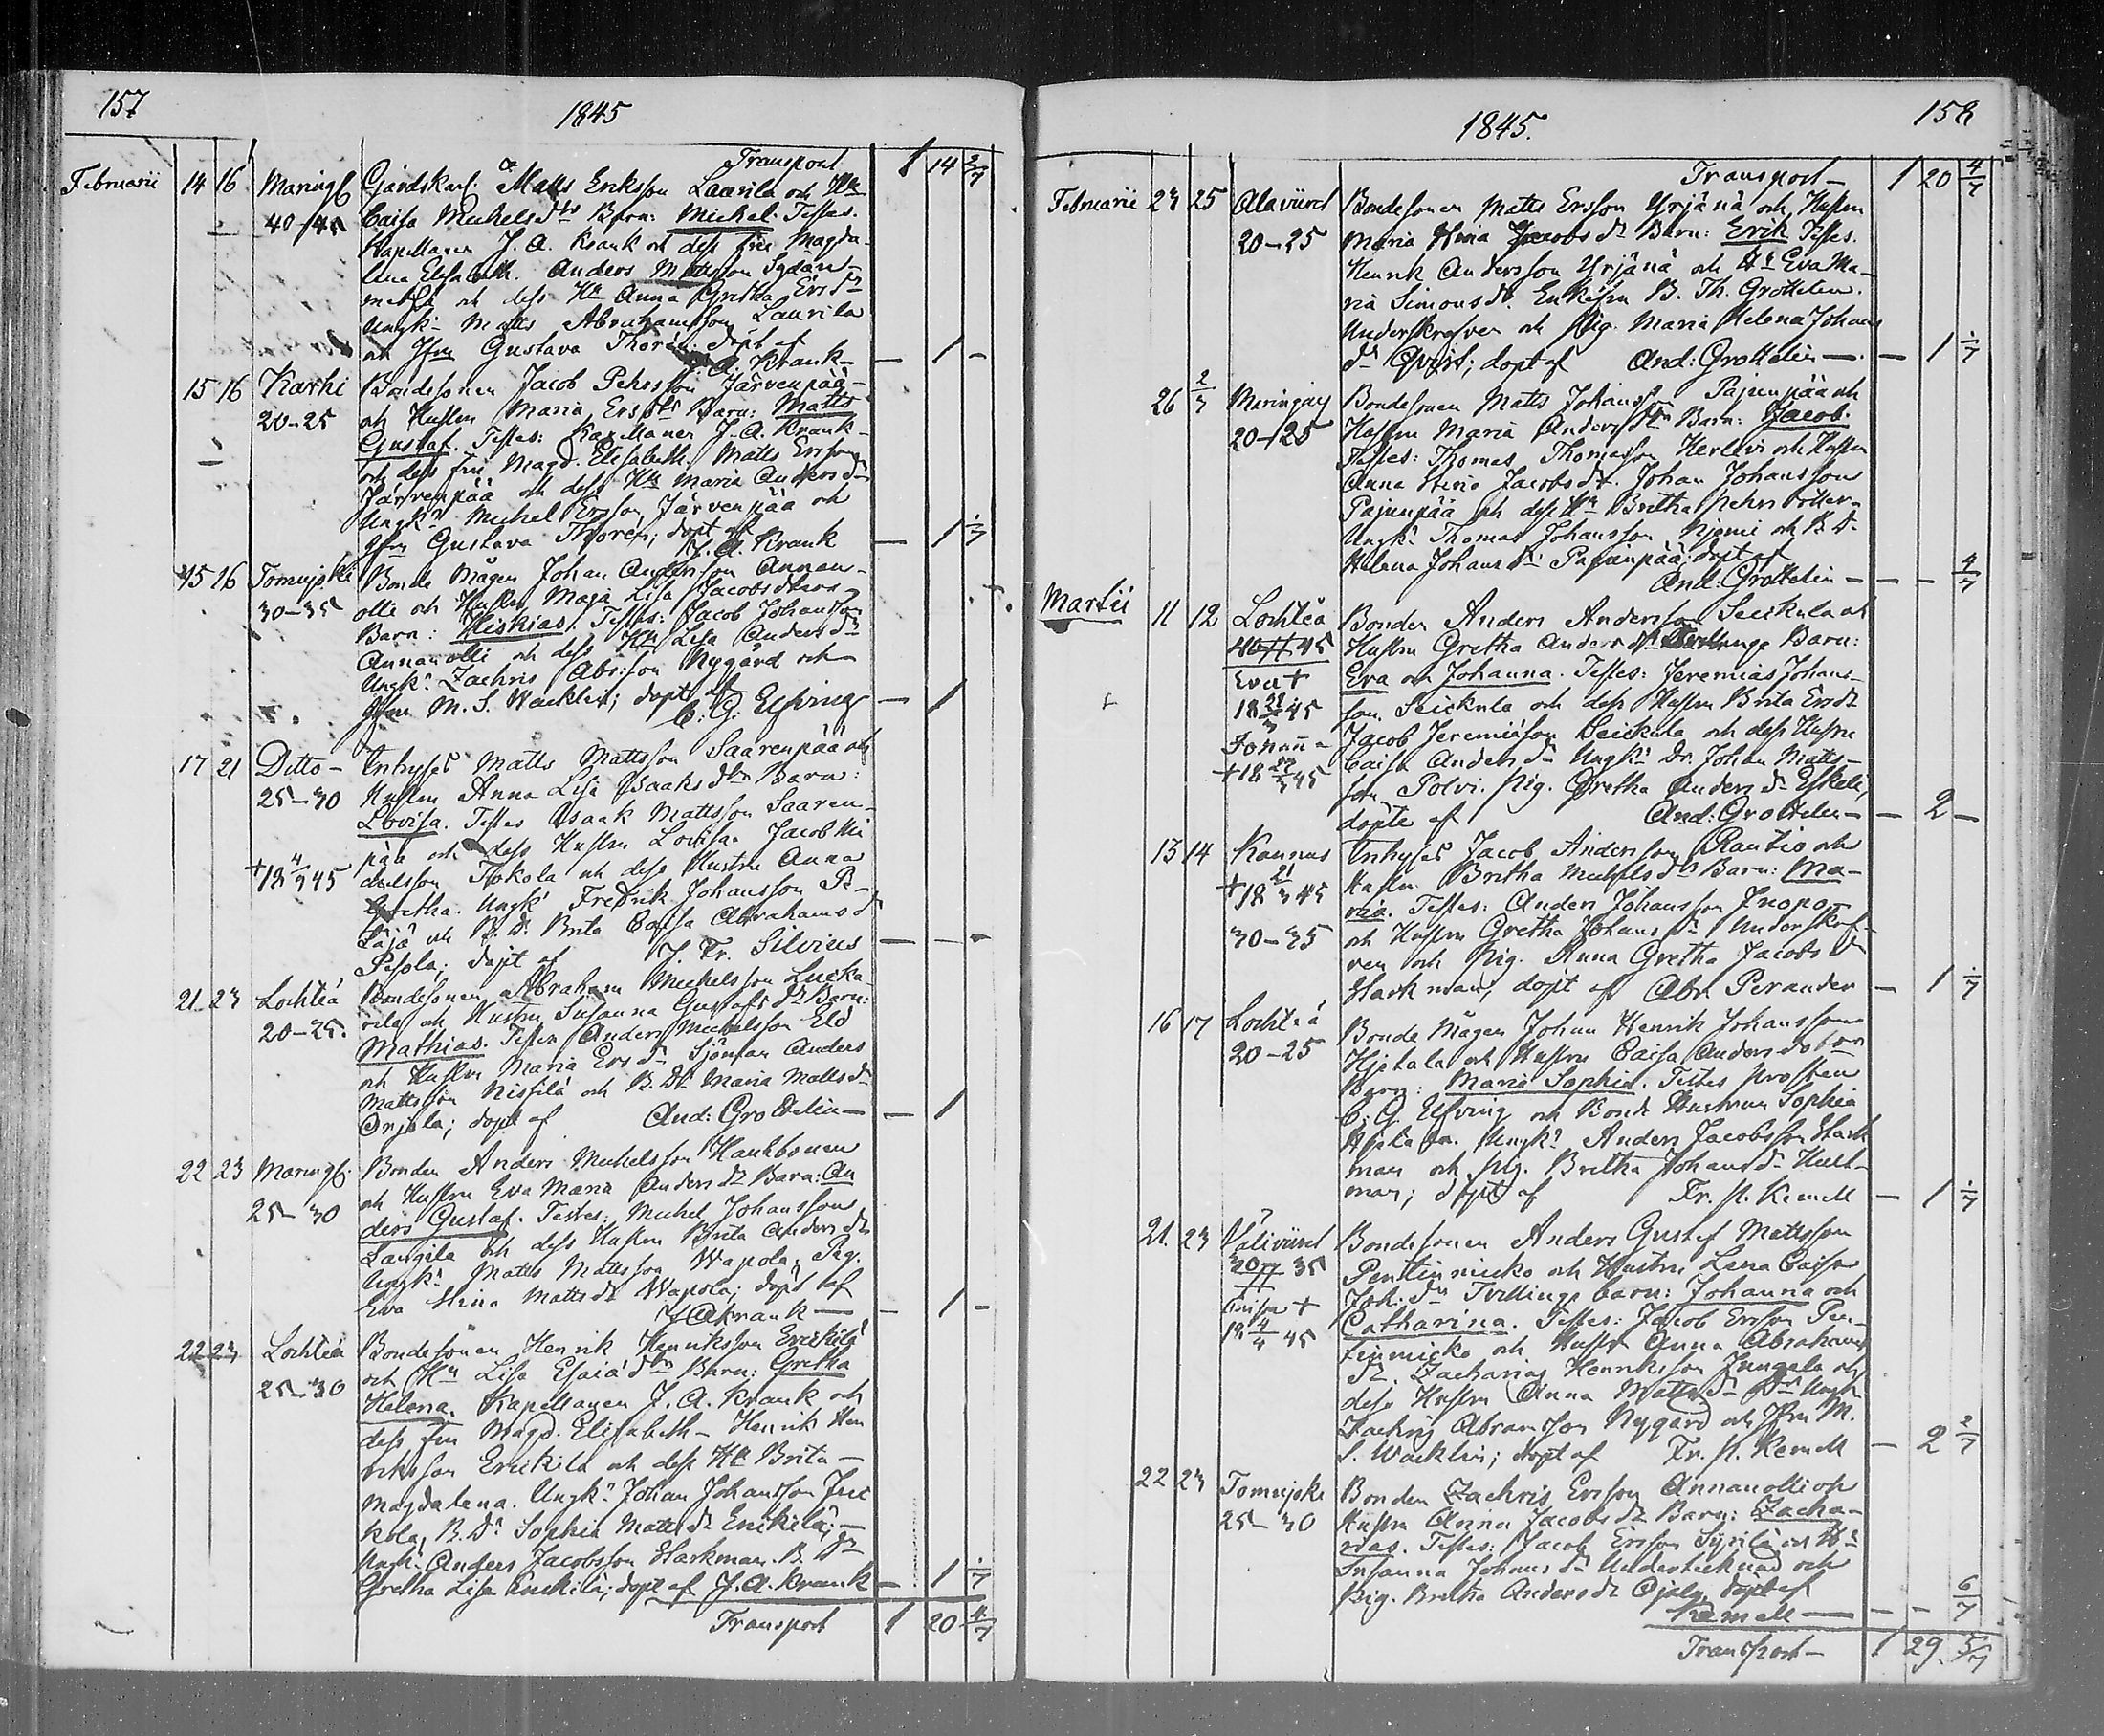 157
1845
Transport 1 14 2/7
Februarii 14 16 Maringb Gårdskarl: Matts Eriksson Laurila och H:u
40-45 Caisa Michels dtrs Barn: Michel. Testes.
Kapellanen J. A. Krank och dess fru Magda-
lena Elisabeth. Anders Mattsson Sydän-
metsä och dess H:u Anna Gretha Ers dr
Ungk: Matts Abrahamsson Laurila
och Jfru Gustava Thorén: döpt af
J. A. Krank — — 1 —
15 16 Karhi Bondesonen Jacob Pehrsson Järvenpää
20-25 och Hustrun Maria Ers dtrs Barn: Matts
Gustaf. Testes: Kapellanen J. A. Krank
och dess fru Magd. Elisabeth. Matts Ersson
Järvenpää och dess H:u Maria Anders dr
Ungk: Michel Ersson Järvenpää och
Jfru Gustava Thorén; döpt af
J. A. Krank — 1 1/7
15 16 Tomujoki Bonde Mågen Johan Andersson Annan-
30-35 olli och Hustrun Maja Lisa Jacobs dtros
Barn: Hiskias. Testes: Jacob Johansson
Annanolli och dess H:u Lisa Anders dr
Ungk: Zachris Abr:son Nygård och
Jfru M. S. Wacklin; döpt af
C. G. Elfving — 1
17 21 Ditto- Inhyses Matts Mattsson Saarenpää och
25-30 Hustrun Anna Lisa Isaks dtrs Barn:
Lovisa. Testes Isaak Mattsson Saaren-
pää och dess Hustru Lovisa. Jacob Mi
+18 4/9 45 chelsson Tokola och dess Hustru Anna
Gretha. Ungk: Fredrik Johansson
och B. D. Brita Caisa Abrahams dr
Pesola; döpt af J. Fr. Silvius — — —
21 23 Lochteå Bondesonen Abraham Michelsson Lucka
20-25. rila och Hustru Susanna Gustafs dr Barn:
Mathias. Testes Anders Michelsson Eld
och Hustru Maria Ers dr Sjöman Anders
Mattsson Nissilä och B. Dr Maria Matts dr
Orjala; döpt af And: Grottelin — — 1
22 23 Maringb Bonden Anders Michelsson Haukbonen
25-30 och Hustrun Eva Maria Anders dr Barn: An
ders Gustaf. Testes: Michel Johansson
Langila och dess Hustru Brita Anders dr
Ungk: Matts Mattsson Wapola, Pig.
Eva Stina Matts dr Wapola; döpt af
J A Krank — — 1 —
22 23 Lochteå Bondesonen Henrik Henriksson Erickilä
25-30 och H:u Lisa Esaiæ dtrs Barn: Gretha
Helena. Kapellanen J. A. Krank och
dess fru Magd. Elisabeth - Henrik Hen
riksson Erickilä och dess H:u Brita
Magdalena. Ungk: Johan Johansson
kola, B. Dr Sophia Matts dr Erickilä;
Ungk: Anders Jacobsson Starkman. B. Dr
Gretha Lisa Erickilä; döpt af J. A. Krank — 1 1/7
Transport 1 20 4/7
158
1845.
Transport — 1 20 4/7
Februarii 23 25 Alaviird Bondesonen Matts Ersson Yrjänä och Hustrun
20-25 Maria Stina Jacobs dr Barn: Erik Testes.
Henrik Andersson Yrjänä och H:u Eva Ma-
ria Simons dr. Enkefru B. Th. Grottelin.
Underskrefven och Pig. Maria Helena Johans
dr Qvist; döpt af And: Grottelin — — 1 1/7
26 2/3 Maringay Bondesonen Matts Johansson Pajunpää och
20-25 Hustrun Maria Anders dtrs Barn: Jacob.
Testes: Thomas Thomasson Herlevi och Hustrun
Anna Stina Jacobs dr. Johan Johansson
Pajunpää och dess H:u Britha Pehrs dotter.
Ungk: Thomas Johansson Njemi och B. D.
Helena Johans dr Pajunpää; döpt af
And: Grottelin — — — 4/7
Martii 11 12 Lochteå Bonden Anders Andersson Seickula och
40//45 Hustrun Gretha Anders dr Tvillinge Barn:
Eva + Eva och Johanna. Testes: Jeremias Johans-
18 21/3 45 son Seickula och dess Hustrun Brita Ers dr
Johanna Jacob Jeremiæson Seickula och dess Hustru
+18 27/3 45 Caisa Anders dr Ungk: Dr. Johan Matts-
son Polvi. Pig. Gretha Anders dr Eskeli;
döpte af And: Grottelin — — 2 —
13 14 Kannus Inhyses Jacob Andersson Rautio och
+18 21/3 45 Hustru Britha Michels dr Barn: Ma-
30-35 ria. Testes: Anders Johansson
och Hustrun Gretha Johans dr Underskref-
ven och Pig. Anna Gretha Jacobs dr
Starkman; döpt af Abr. Perander — 1 1/7
16 17 Lochteå Bonde Mågen Johan Henrik Johansson
20-25 Hjetala och Hustrun Caisa Anders dotters
Barn: Maria Sophia. Testes Prosten
C. G. Elfving och Bonde Hustrun Sophia
Ungk: Anders Jacobsson Stark
man och Pig. Britha Johans dr
man; döpt af Fr. P. Kemell — 1 1/7
21. 23 Väliviird Bondesonen Anders Gustaf Mattsson
30//35 Penttinmicko och Hustru Lena Caisa
Joh: dr Tvillinge barn: Johanna och
Caisa + Catharina. Testes: Jacob Ersson Pen-
18 4/4 45 tinmicko och Hustru Anna Abrahams
dr. Zacharias Henriksson Jungala och
dess Hustru Anna Matts dr Ungk:
Zachris Abramson Nygård och Jfru M.
S. Wacklin; döpt af Fr. P. Kemell — 2 2/7
22 23 Tomujoki Bonden Zachris Ersson Annanolli och
25-30 Hustrun Anna Jacobs dr Barn: Zacha-
rias. Testes: Jacob Ersson Syrilä och H:u
Susanna Johans dr Undertecknad och
Pig. Britha Anders dr Ojala, döpt af
Kemell — — — 6/7
Transport — 1 29. 5/7